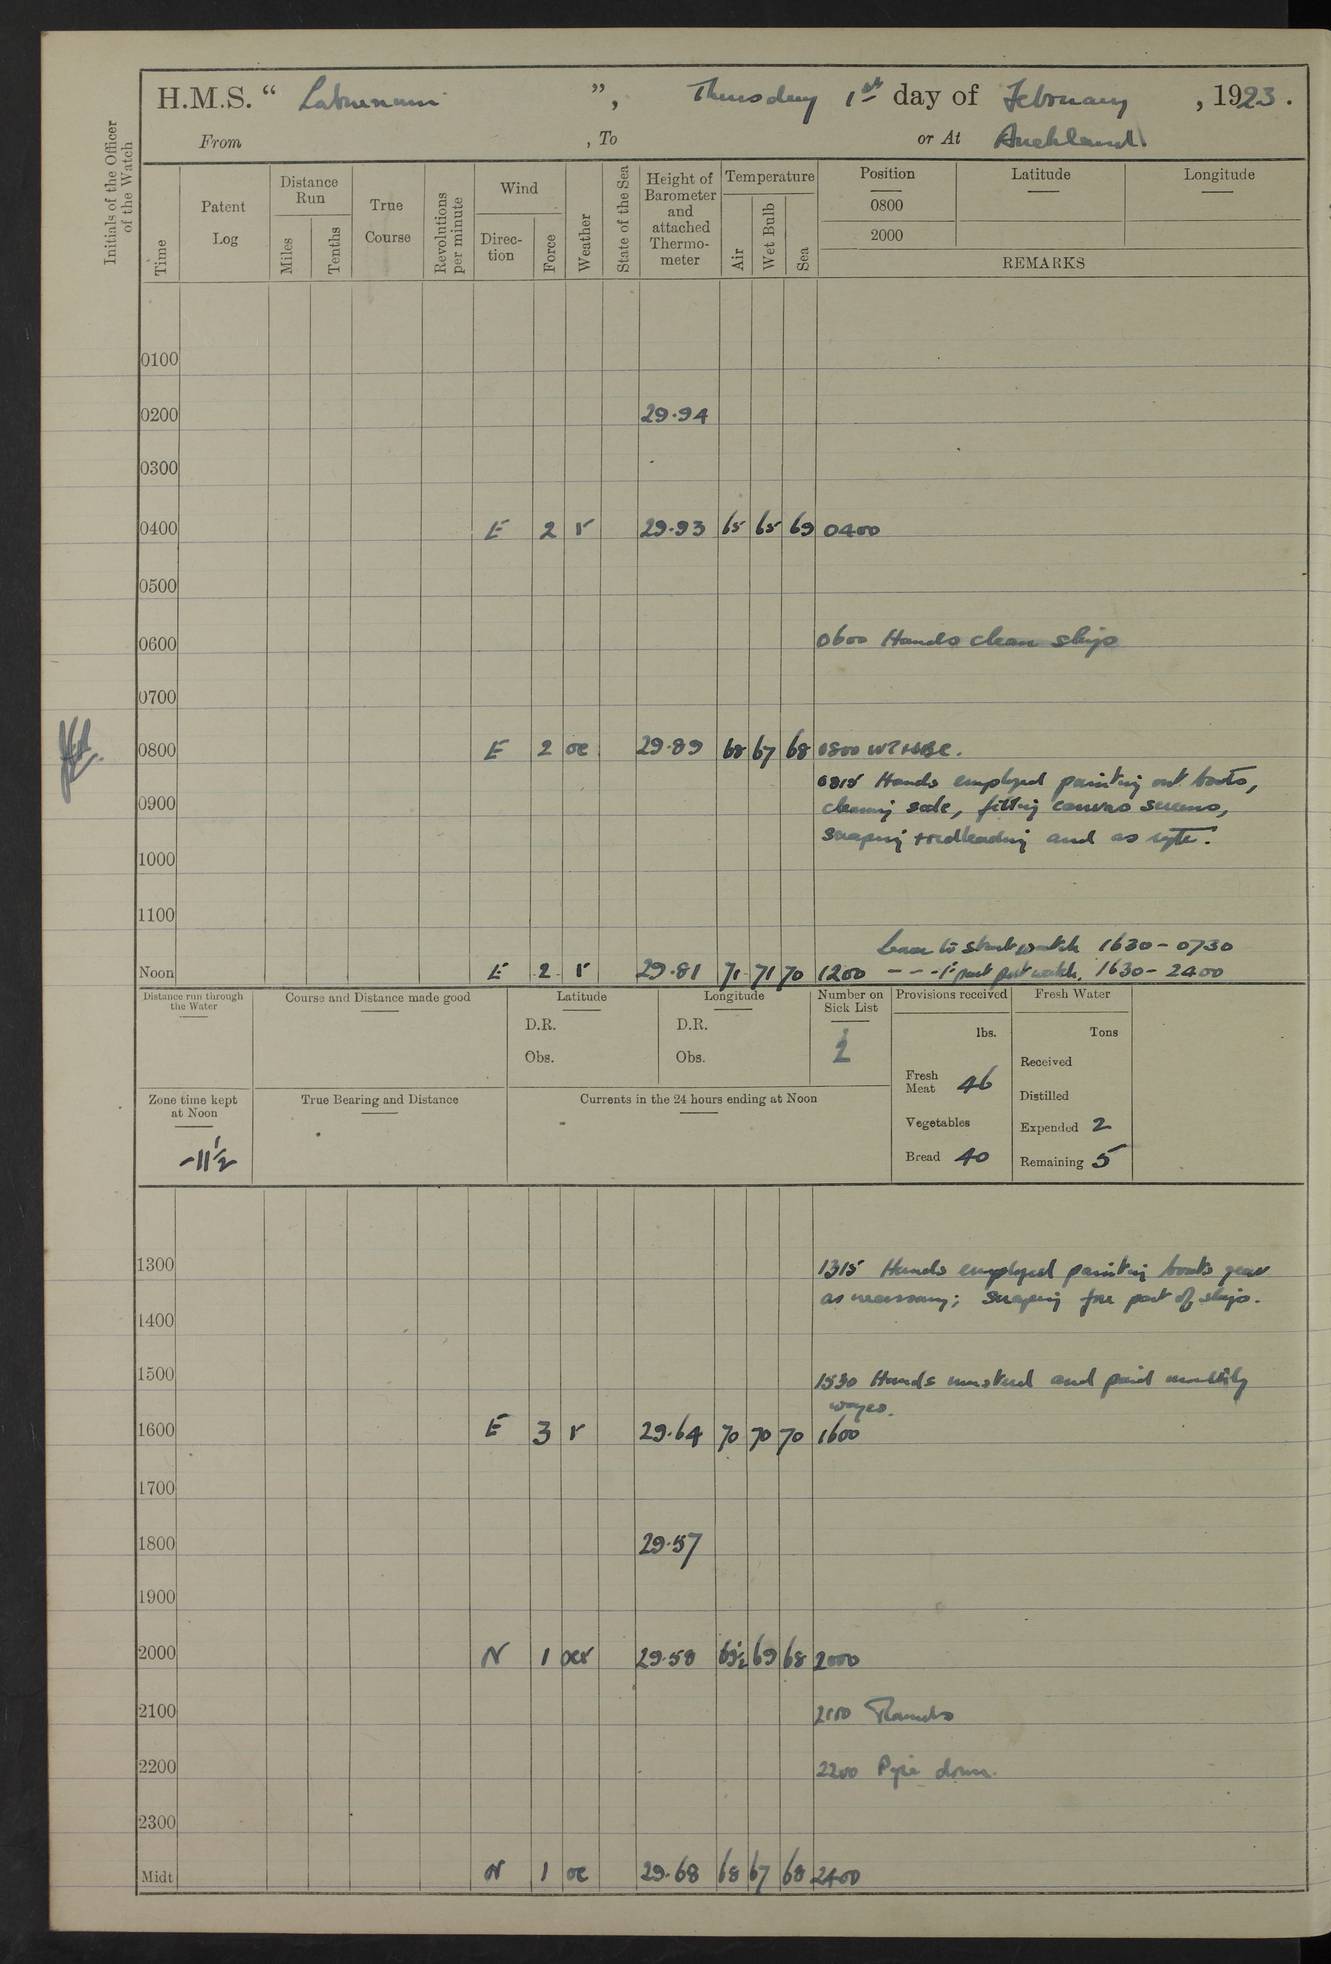 H.M.S. “ Laburnum ”, Thursday 1st day of February, 1923.
From , To or At Auckland
Initials of the Officer of the Watch
Time
Patent Log
Distance Run
Miles
Tenths
True Course
Revolutions per minute
Wind
Direc-tion
Force
Weather
State of the Sea
Height of Barometer and attached Thermo-meter
Temperature
Air
Wet Bulb
Sea
Position Latitude Longitude
0800
2000
REMARKS
0100
0200 29.94
0300
0400 E 2 r 29.93 65 65 69 0400
0500
0600 0600 Hands clean ship
0700
0800 E 2 oc 29.89 68 67 68 0800
0815 Hands employed painting out boats,
0900 cleaning side, fitting canvas screens,
scraping + redleading and as reqte.
1000
1100
Leave to starbd watch 1630 - 0730
Noon E 2 r 29.81 71 71 70 1200 - - - 1st part port watch. 1630 - 2400
Distance run through the Water
Course and Distance made good
Latitude
D.R.
Obs.
Longitude
D.R.
Obs.
Number on Sick List
2
Provisions received
lbs.
Fresh Meat 46
Vegetables
Bread 40
Fresh Water
Tons
Received
Distilled
Expended 2
Remaining 5
Zone time kept at Noon
-11½
True Bearing and Distance
Currents in the 24 hours ending at Noon
1300 1315 Hands employed painting boats gear
as necessary; scraping fore part of ship.
1400
1500 1530 Hands mustered and paid monthly
wages.
1600 E 3 r 29.64 70 70 70 1600
1700
1800 29.57
1900
2000 N 1 ocr 29.58 69½ 69 68 2000
2100 2100 Rounds
2200 2200 Pipe down.
2300
Midt N 1 oc 29.68 68 67 68 2400